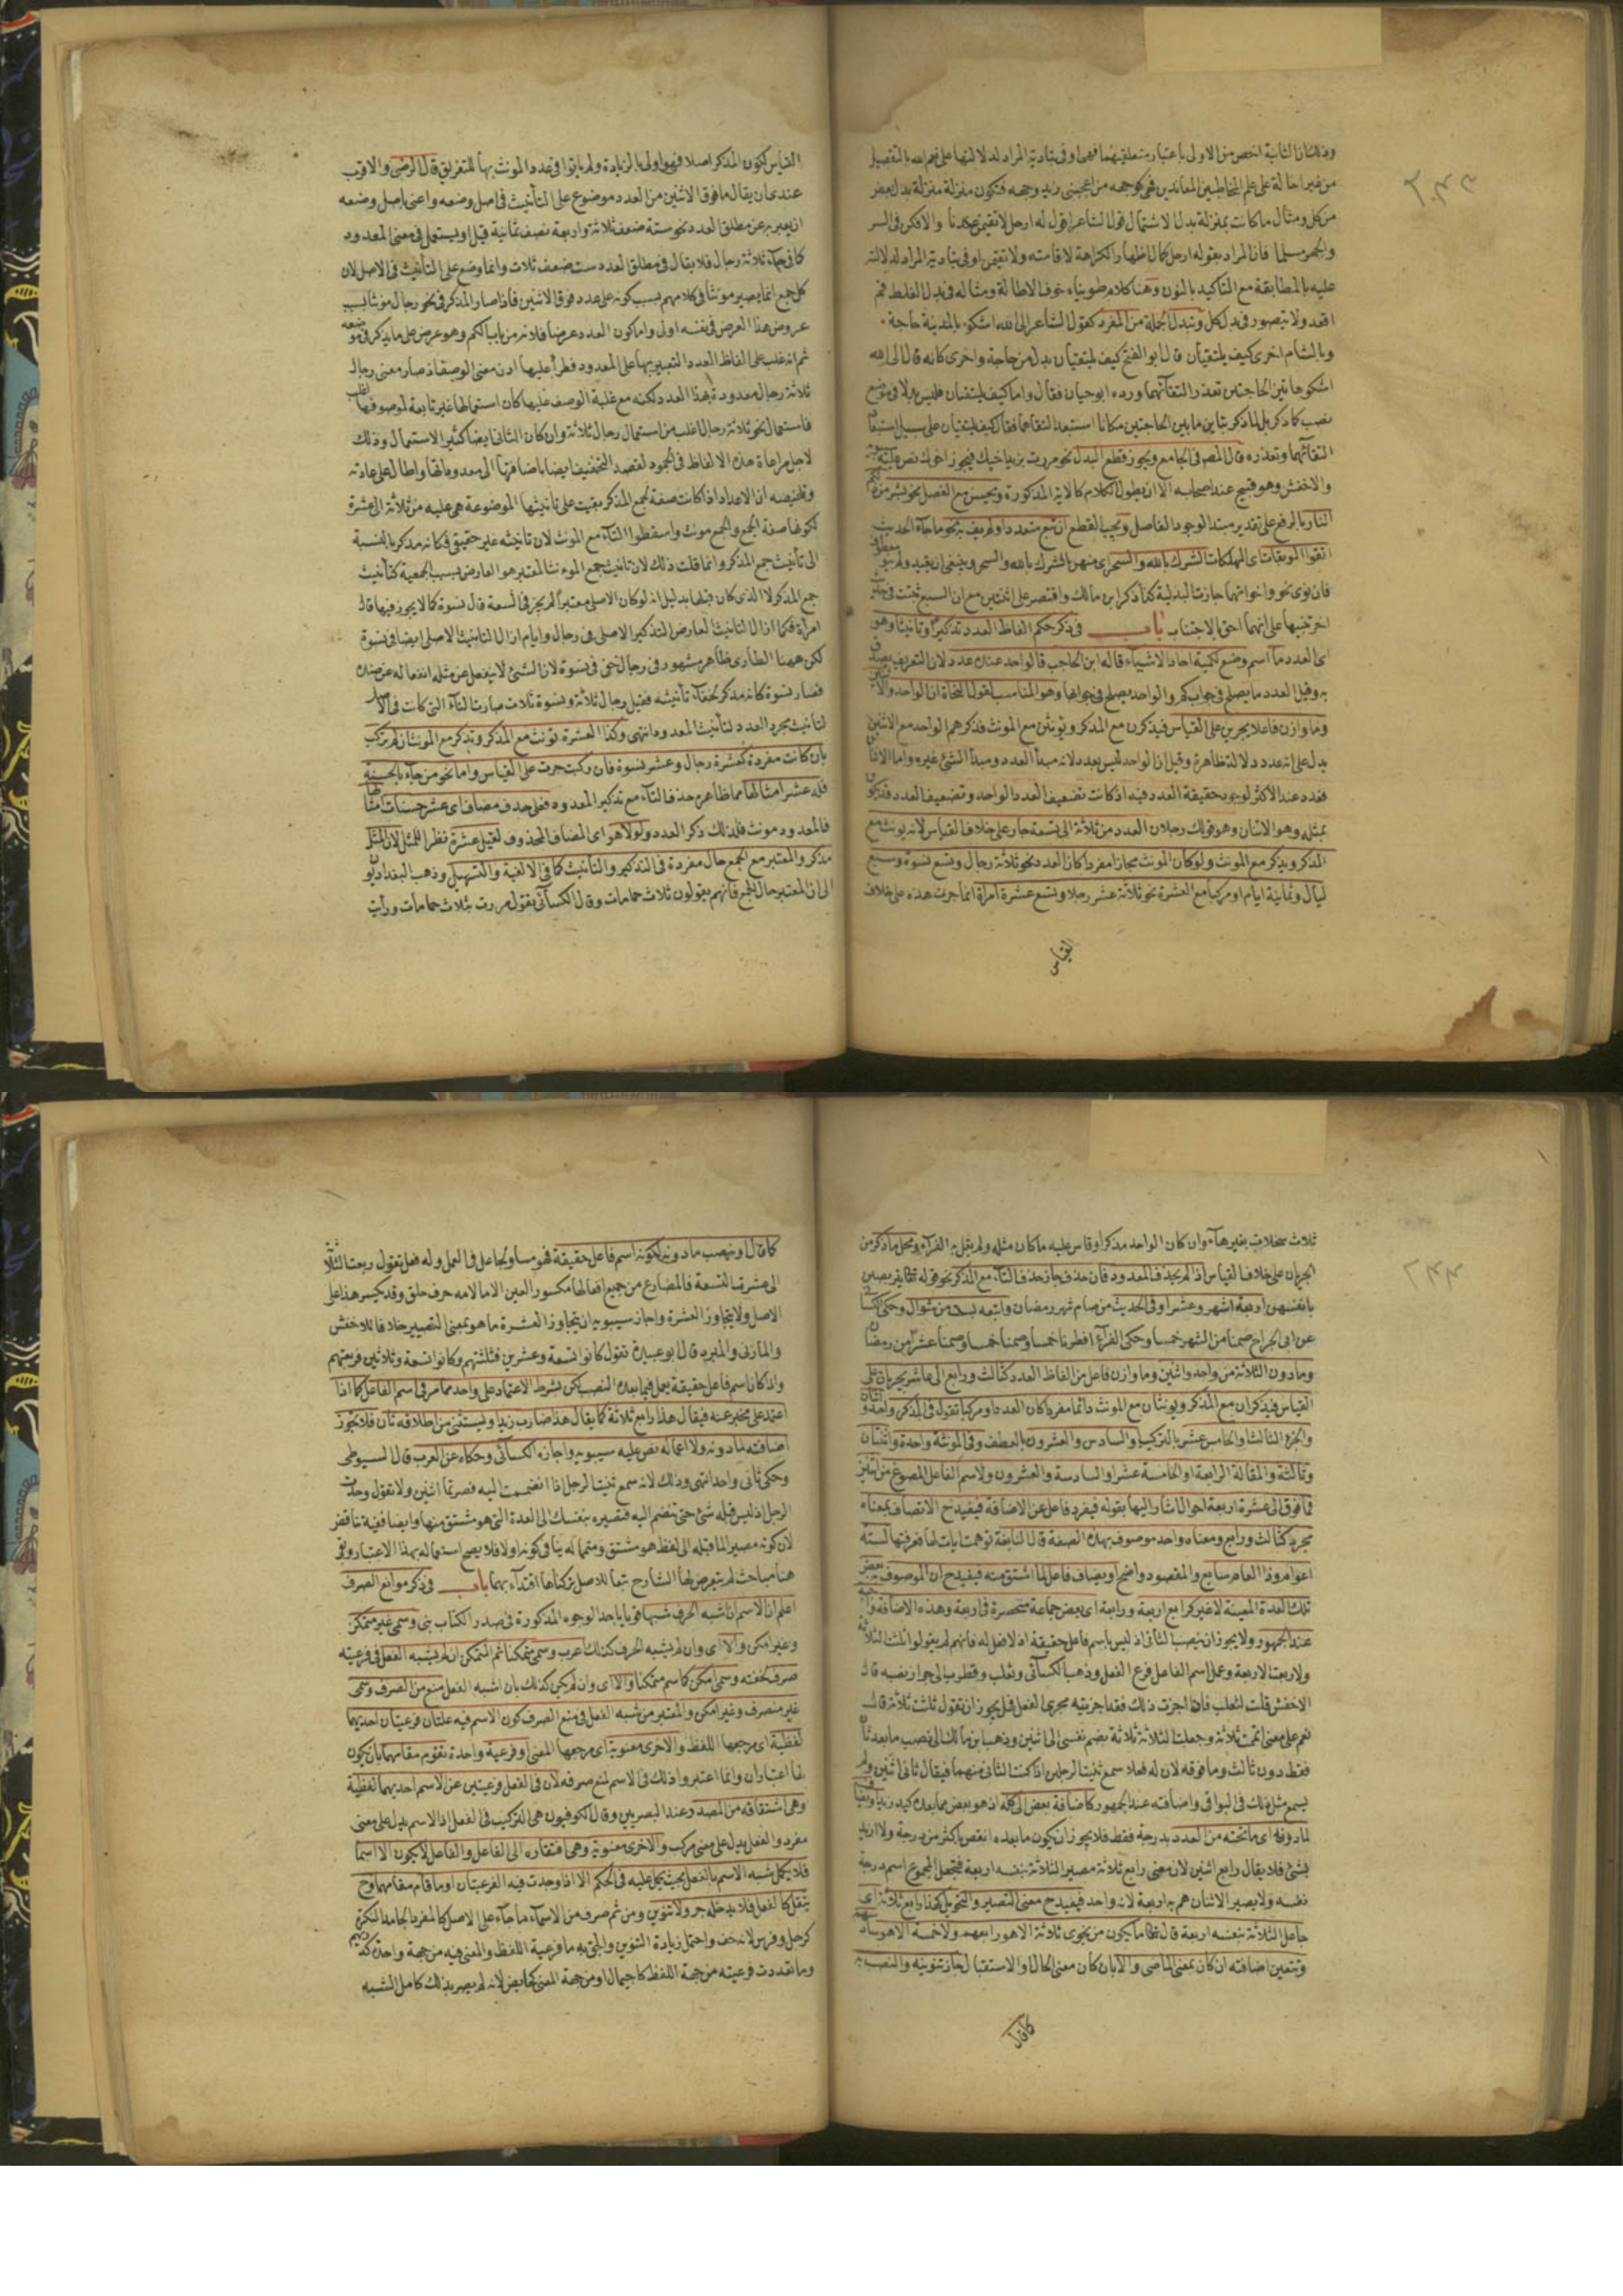 وذلك ان الثانية اخص من الاولى باعتبار متعلقيهما فهى اوفى بتادية المراد لدلالتها على نعم الله بالتفصيل
من غير احالة على علم المخاطبين المعاندين فهى كوجهه من اعجبنى زيد وجهه فتكون منزلة منزلة بدل بعض
من كل ومثال ما كانت بمنزلة بدل الاشتمال قول الشاعر اقول له ارحل لا تقيمن عندنا والا فكن فى السر
والجهر مسلما فان المراد بقوله ارحل كمال اظهار الكراهة لاقامته ولا تقيمن اوفى بتادية المراد لدلالته
عليه بالمطابقة مع التاكيد بالنون وهنا كلام طويناه خوف الاطالة ومثاله فى بدل الغلط قم
اقعد ولا يتصور فى بدل كل وتبدل الجملة من المفرد كقول الشاعر الى الله اشكو بالمدينة حاجة
وبالشام اخرى كيف يلتقيان قال ابو الفتح كيف يلتقيان بدل من حاجة واخرى كانه قال الى الله
اشكو هاتين الحاجتين تعذر التقائهما ورده ابو حيان فقال واما كيف يلتقيان فليس بدلا فى موضع
نصب كما ذكر بل لما ذكر تباين ما بين الحاجتين مكانا استبعد التقاهما فقال كيف يلتقيان على سبيل استبعاد
التقائهما وتعذره قال المص فى الجامع ويجوز قطع البدل نحو مررت بزيد اخيك فيجوز اخوك نص عليه
والاخفش وهو قبيح عند اصحابه الا ان يطول الكلام كالاية المذكورة ويحسن مع الفصل نحو بشر من ذلكم
النار بالرفع على تقدير مبتدا لوجود الفاصل ويجب القطع ان تبع متعددا ولم يف به نحو ما جاء الحديث
اتقوا الموبقات اى المهلكات الشرك بالله والسحر اى منهن الشرك بالله والسحر وينبغى ان يقيد ولم ينو معطوف
فان نوى نحو واخواتهما جازت البدلية كما ذكر ابن مالك واقتصر على اثنتين مع ان السبع ثبتت فى حديث
اخر تنبيها على انهما احق بالاجتناب باب فى ذكر حكم الفاظ العدد تذكيرا وتانيثا وهو
اى العدد ما اسم وضع لكمية احاد الاشياء قاله ابن الحاجب قالواحد عنده عدد لان التعريف يصدق
به وقيل العدد ما يصلح فى جواب كم والواحد يصلح فى جوابها وهو المناسب لقول النحاة ان الواحد والاثنين
وما وازن فاعلا يجرين على القياس فيذكرن مع المذكر ويؤنثن مع المونث فذكرهم الواحد مع الاثنين
يدل على انه عدد دلالة ظاهرة وقيل ان الواحد ليس بعدد لانه مبدأ العدد ومبدأ الشئ غيره واما الاثنان
فعدد عند الاكثر لوجود حقيقة العدد فيه اذ كانت تضعيف العدد الواحد وتضعيف العدد قد يكون
بمثله وهو الاثنان وهو قولك رجلان العدد من ثلاثة الى تسعة جار على خلاف القياس لانه يونث مع
المذكر ويذكر مع المونث ولو كان المونث مجازا مفردا كان العدد نحو ثلاثة رجال وتسع نسوة وسبع
ليال وثمانية ايام او مركبا مع العشرة نحو ثلاثة عشر رجلا وتسع عشرة امرأة انما جرت هذه على خلاف
القياس
القياس لكون المذكر اصلا فهو اولى بالزيادة ولم ياتوا فى عدد المونث بها للتفريق قال الرضى والاقرب
عندى ان يقال ما فوق الاثنين من العدد موضوع على التأنيث فى اصل وضعه واعنى باصل وضعه
ان يعبر به عن مطلق العدد نحو ستة ضعف ثلاثة واربعة نصف ثمانية قبل او يستعمل فى معنى المعدود
كما فى جآء ثلاثة رجال فلا يقال فى مطلق العدد ست ضعف ثلاث وانما وضع على التأنيث فى الاصل لان
كل جمع انما يصير مونثا فى كلامهم بسبب كونه على عدد فوق الاثنين فاذا صار المذكر فى نحو رجال مونثا بسبب
عروض هذا العرض فنفسه اولى واما كون العدد عرضا فلانه من باب الكم وهو عرض على ما يذكر فى موضعه
ثم انه غلب على الفاظ العدد التعبير بها على المعدود فطرأ عليها اذن معنى الوصف اذ صار معنى رجال
ثلاثة رجال معدودة بهذا العدد لكنه مع غلبة الوصف عليها كان استعمالها غير تابعة لموصوفها اغلب
فاستعمال نحو ثلاثة رجال اغلب من استعمال رجال ثلاثة وان كان الثانى ايضا كثير الاستعمال وذلك
لاجل مراعاة هذه الالفاظ فى الجمود لقصد التخفيف ايضا باضافتها الى معدوداتها واطال على عادته
وتلخيصه ان الاعداد اذا كانت صفة لجمع المذكر بقيت على تانيثها الموضوعة هى عليه من ثلاثة الى عشرة
لكونها صفة الجمع والجمع مونث واسقطوا التآء مع المونث لان تانيثه غير حقيقى فكانه مذكر بالنسبة
الى تأنيث جمع المذكر وانما قلت ذلك لان تانيث جمع المونث المعتبر هو العارض بسبب الجمعية كتأنيث
جمع المذكر لا الذى كان قبلها بدليل انه لو كان الاصلى معتبرا لم يجز فى السعة قال نسوة كما لا يجوز فيها قال
امرأة فكما ازال التانيث العارض التذكير الاصلى فى رجال وايام ازال التانيث الاصلى ايضا فى نسوة
لكن ههنا الطارى ظاهر مشهور فى رجال خفى فى نسوة لان الشئ لا ينفعل عن مثله انفعاله عن ضده
فصار نسوة كانه مذكر لخفآء تأنيثه فقيل رجال ثلاثة ونسوة ثلاث صارت التآء التى كانت فى الاصل
لتانيث مجرد العدد لتأنيث المعدود انتهى وكذا العشرة تونث مع المذكر وتذكر مع المونث ان لم تركب
بان كانت مفردة كعشرة رجال وعشر نسوة فان ركبت جرت على القياس واما نحو من جآء بالحسنة
فله عشر امثالها مما ظاهره حذف التآء مع تذكير المعدود فعلى حذف مضاف اى عشر حسنات امثالها
فالمعدود مونث فلذلك ذكر العدد ولولا هو اى المضاف المحذوف لقيل عشرة نظرا للمثل لان المثل
مذكر والمعتبر مع الجمع حال مفرده فى التذكير والتانيث كما فى الالفية والتسهيل وذهب البغداديون
الى ان المعتبر حال الجمع فانهم يقولون ثلاث حمامات وقال الكسائى يقول مررت بثلاث حمامات ورأيت
ثلاث سجلات بغير هآء وان كان الواحد مذكرا وقاس عليه ما كان مثله ولم يقل به الفرآء ومحل ما ذكر من
الجريان على خلاف القياس اذا لم يحذف المعدود فان حذف جاز حذف التآء مع المذكر نحو قوله تعالى يتربصن
بانفسهن اربعة اشهر وعشرا وفى الحديث من صام شهر رمضان واتبعه بست من شوال وحكى الكسائى
عن ابى الجراح صمنا من الشهر خمسا وحكى الفرآء افطرنا خمسا وصمنا خمسا وصمنا عشرا من رمضان
وما دون الثلاثة من واحد واثنين وما وازن فاعل من الفاظ العدد كثالث ورابع الى عاشر يجريان على
القياس فيذكران مع المذكر ويونثان مع المونث دائما مفردا كان العدد او مركبا تقول فى المذكر واحد واثنان
والجزء الثالث والخامس عشر بالتركيب والسادس والعشرون بالعطف وفى المونثة واحدة واثنتان
وثالثة والمقالة الرابعة او الخامسة عشرا والسادسة والعشرون ولاسم الفاعل المصوغ من اثنين
فما فوق الى عشرة اربعة احوال اشار اليها بقوله فيفرد فاعل عن الاضافة فيفيد ح الاتصاف بمعناه
مجردا كثالث ورابع ومعناه واحد موصوف بهذه الصفة قال النابغة توهمت ايات لها فعرفتها لستة
اعوام وذا العام سابع والمقصود واضح او يضاف فاعل لما اشتق منه فيفيد ح ان الموصوف به بعض
تلك العدة المعينة لا غير كرابع اربعة ورابعة اى بعض جماعة منحصرة فى اربعة وهذه الاضافة واجبة
عند الجمهور ولا يجوز ان ينصب الثانى اذ ليس باسم فاعل حقيقة اذ لا فعل له فانهم لم يقولوا ثلثت الثلاثة
ولا ربعت الاربعة وعمل اسم الفاعل فرع الفعل وذهب الكسائى وثعلب وقطرب الى جواز نصبه قال
الاخفش قلت لثعلب فاذا اجزت ذلك فقد اجريته مجرى الفعل فهل يجوز ان تقول ثلثت ثلاثة قال
نعم على معنى اتممت ثلاثة وجعلت الثلاثة ثلاثة بضم نفسى الى اثنين وذهب ابن مالك الى نصب ما بعد ثان
فقط دون ثالث وما فوقه لان له فعلا سمع ثنيت الرجلين اذا كنت الثانى منهما فيقال ثانى اثنين ولم
يسمع مثل ذلك فى البواقى واضافته عند الجمهور كاضافة بعض الى كله اذ هو بعض مما بعده كيد زيد ويضاف
لما دونه اى ما تحته من العدد بدرجة فقط فلا يجوز ان يكون ما بعده انقص باكثر من درجة ولا ازيد
بشئ فلا يقال رابع اثنين لان معنى رابع ثلاثة مصير الثلاثة بنفسه اربعة فتجعل المجموع اسم درجة
نفسه ولا يصير الاثنان هم به اربعة لانه واحد فيفيد ح معنى التصيير والتحويل كهذا رابع ثلاثة اى
جاعل الثلاثة بنفسه اربعة قال تعالى ما يكون من نجوى ثلاثة الا هو رابعهم ولا خمسة الا هو سادسهم
وتتعين اضافته ان كان بمعنى الماضى والا بان كان معنى الحال او الاستقبال جاز تنوينه والنصب به
كما قال
كما قال او ينصب ما دونه لكونه اسم فاعل حقيقة فهو مساو لجاعل فى العمل وله فعل تقول ربعت الثلاثة
الى عشرت التسعة فالمضارع من جميع افعالها مكسور العين الا ما لامه حرف حلق وقد يكسر هذا على
الاصل ولا يتجاوز العشرة واجاز سيبويه ان يتجاوز العشرة ما هو بمعنى التصيير خلافا للاخفش
والمازنى والمبرد قال ابو عبيدة تقول كانوا تسعة وعشرين فثلثتهم وكانوا تسعة وثلاثين فربعتهم
واذ كان اسم فاعل حقيقة يعمل فيما بعده النصب لكن بشرط الاعتماد على واحد مما مر فى اسم الفاعل كما اذا
اعتمد على مخبر عنه فيقال هذا رابع ثلاثة كما يقال هذا ضارب زيدا ويستثنى من اطلاقه ثان فلا يجوز
اضافته لما دونه ولا اعماله نص عليه سيبويه واجازه الكسائى وحكاه عن العرب قال السيوطى
وحكى ثانى واحد انتهى وذلك لانه سمع ثنيت الرجل اذا انضممت اليه فصرتما اثنين ولا تقول وحدت
الرجل اذ ليس قبله شئ حتى تنضم اليه فتصيره بنفسك الى العدة التى هو مشتق منها وايضا ففيه تناقض
لان كونه مصيرا لما قبله الى لفظ هو مشتق ومتمما له ينافى كونه اولا فلا يصح استعماله بهذا الاعتبار وبقى
هنا مباحث لم يتعرض لها الشارح تبعا للاصل تركناها اقتدآء بهما باب فى ذكر موانع الصرف
اعلم ان الاسم ان اشبه الحرف شبها قويا باحد الوجوه المذكورة فى صدر الكتاب بنى وسمى غير متمكن
وغير امكن والا اى وان لم يشبه الحرف كذلك اعرب وسمى متمكنا ثم المتمكن ان لم يشبه الفعل فى فرعيته
صرف لخفته وسمى امكن كما سم متمكنا والا اى وان لم يكن كذلك بان اشبه الفعل منع من الصرف وسمى
غير منصرف وغير امكن والمعتبر من شبه الفعل فى منع الصرف كون الاسم فيه علتان فرعيتان احديهما
لفظية اى مرجعها اللفظ والاخرى معنوية اى مرجعها المعنى او فرعية واحدة تقوم مقامهما بان يكون
لها اعتباران وانما اعتبروا ذلك فى الاسم لمنع صرفه لان فى الفعل فرعيتين عن الاسم احديهما لفظية
وهى اشتقاقه من المصدر عند البصريين وقال الكوفيون هى التركيب فى الفعل اذ الاسم يدل على معنى
مفرد والفعل يدل على معنى مركب والاخرى معنوية وهى افتقاره الى الفاعل والفاعل لا يكون الا اسما
فلا يكمل شبه الاسم بالفعل بحيث يحمل عليه فى الحكم الا اذا وجدت فيه الفرعيتان او ما قام مقامهما وح
يثقل كالفعل فلا يدخله جر ولا تنوين ومن ثم صرف من الاسمآء ما جآء على الاصل كالمفرد الجامد النكرة
كرجل وفرس لانه خف واحتمل زيادة التنوين والحق به ما فرعية اللفظ والمعنى فيه من جهة واحدة كدريهم
وما تعددت فرعيته من جهة اللفظ كاجيمال او من جهة المعنى كحايض لانه لم يصر بذلك كامل الشبه